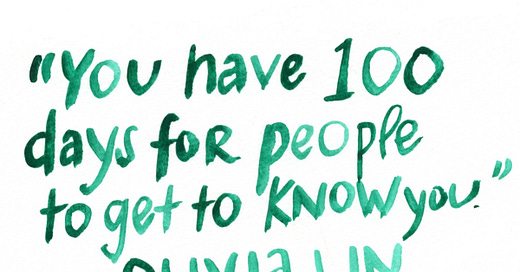 "You have 100
days for people
to get to know you."
OLIVIA LIN